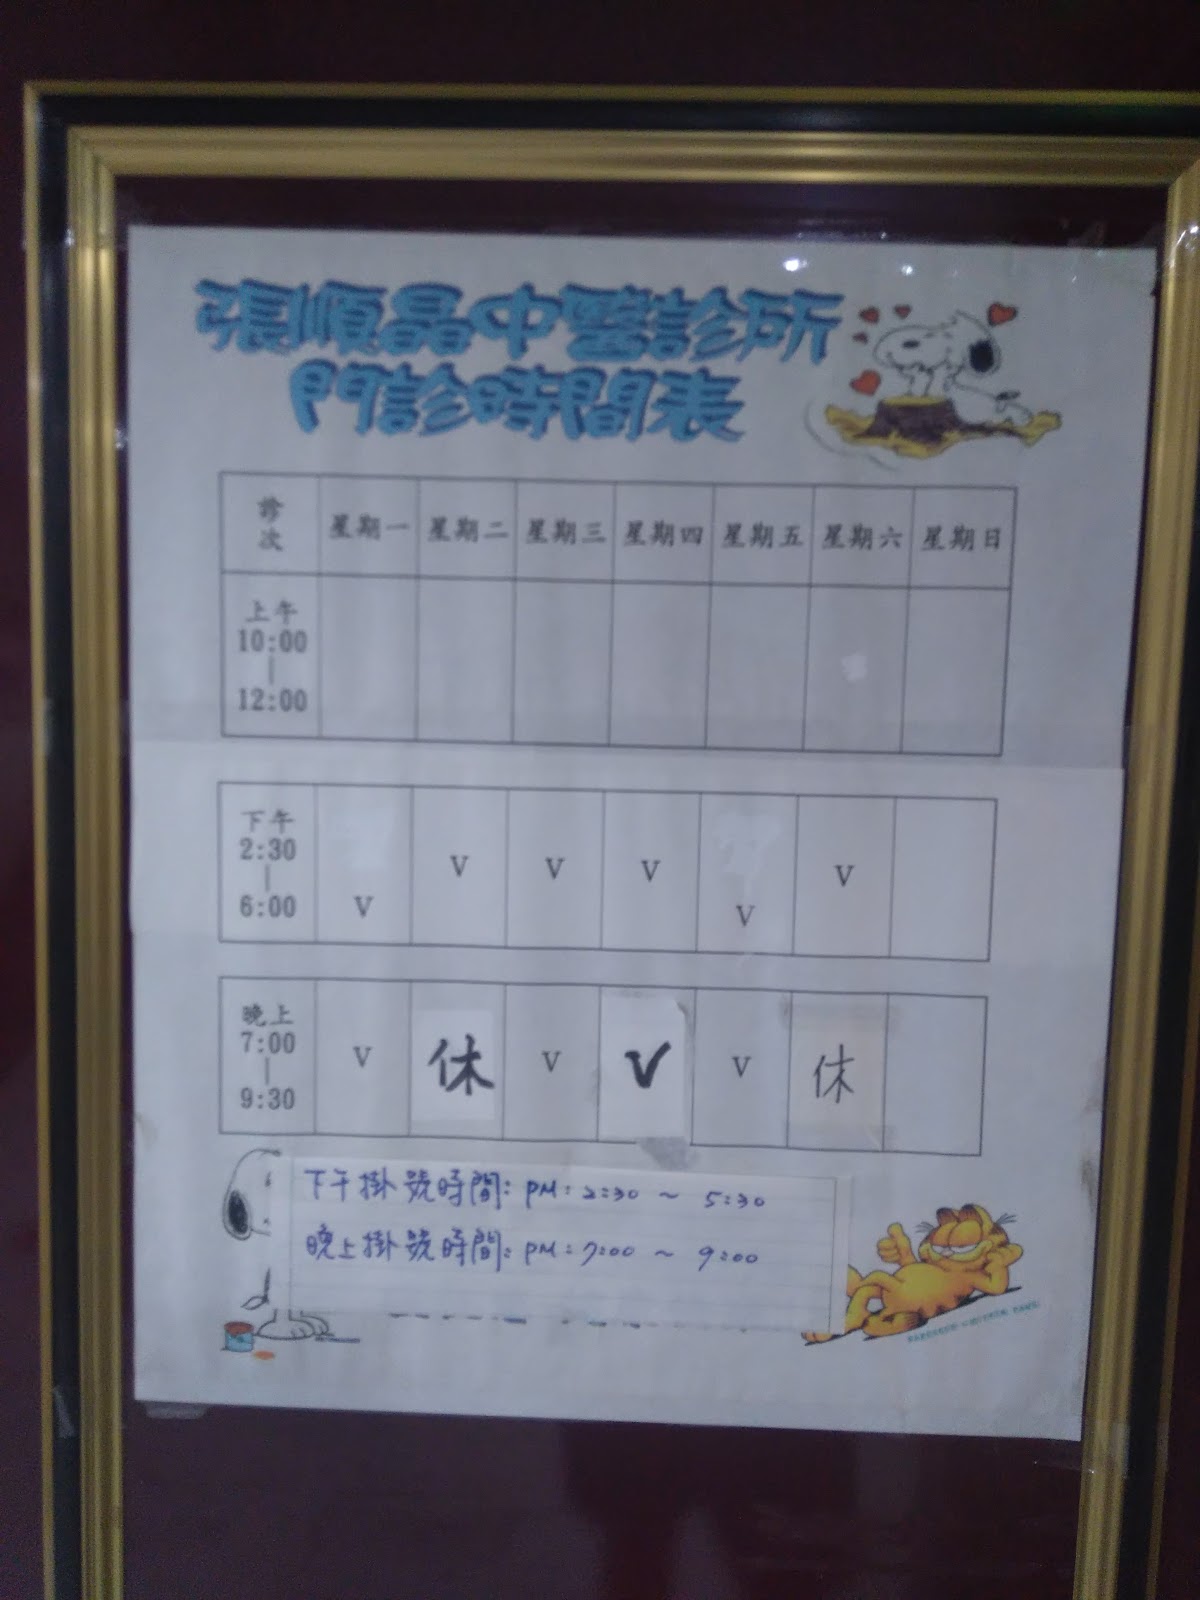 張順晶中醫診所
門診時間表
診次 星期一 星期二 星期三 星期四 星期五 星期六 星期日
上午
10:00
|
12:00
下午
2:30
|
6:00
V V V V V V
晚上
7:00
|
9:30
V 休 V V V 休
下午掛號時間: PM: 2:30 ~ 5:30
晚上掛號時間: PM: 7:00 ~ 9:00